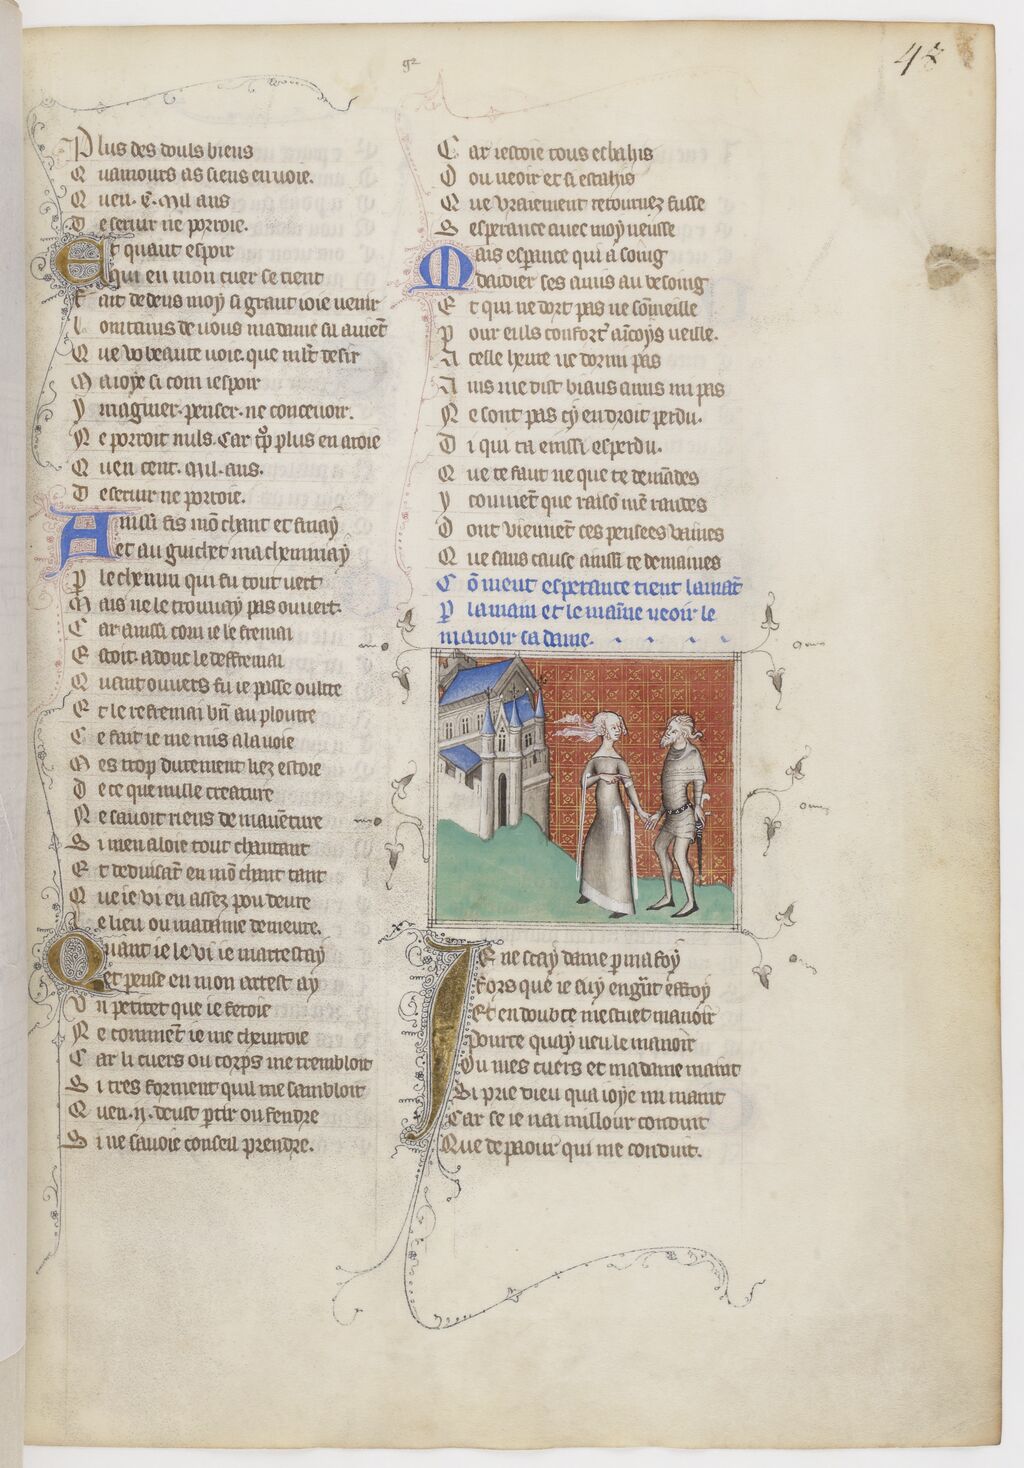 42
Plus des douls biens
Quamours as siens envoie.
Quen .c. mil ans
Deservir ne porroie.
Et quant espoir
qui en mon cuer se tient
Fait dedens moy si grant joie venir
Lontains de vous ma dame
Que vo beaute voie. que desir
Ma joye si com jespoir
Ymaginer. penser. ne concevoir.
Ne porroit nuls. Car plus en aroie
Quen cent. mil. ans.
Deservir ne porroie.
Ainssi fis mō chant et finay
et au guichet macheminay
P le chemin qui fu tout vert
Mais ne le trouvay pas ouvert.
Car ainssi com je le fremai
Estoit. adont le deffremai
Quant ouvers fu je passe oultre
Et le refremai au ploutre
Ce fait je me mis a la voie
Mes trop durement liez estoie
De ce que nulle creature
Ne savoit riens de mavēture
Si men aloie tout chantant
Et deduisāt en mō chant tant
Que je vi en assez pou deure
Le lieu ou madame demeure.
Quant je le vi je marrestay
et pense en mon arrest ay
Un petitet que je feroie
Ne commēt je me cheviroie
Car li cuers ou corps me trembloit
Si tres forment quil me sambloit
Quen .ij. deust ptir ou fendre
Si ne savoie conseil prendre.
Car jestoie tous esbahis
Dou veoir et si estahis
Que vraiement retournez fusse
Se esperance avec moy neusse
Mais espance qui a soing
daidier ses amis au besoing
Et qui ne dort pas ne sōmeille
Pour euls confort aīcoys veille.
A celle heure ne dormi pas
Ains me dist biaus amis mi pas
Ne sont pas cy endroit perdu.
Di qui ta einssi esperdu.
Que te faut ne que te demādes
Y couviēt que raisō mē randes
Dont viennēt ces pensees vaines
Que sans cause ainssi te demaines
Cōment esperance tient lamāt
P la main et le maīne veoir le
manoir sa dame.
Je ne scay dame p ma foy
Fors que je suy en effroy
Et en doubte me
Pource quay veu le manoir
Ou mes cuers et ma dame maint
Si prie dieu qua joye mi maint
Car se je nai millour conduit
Que de paour qui me conduit.